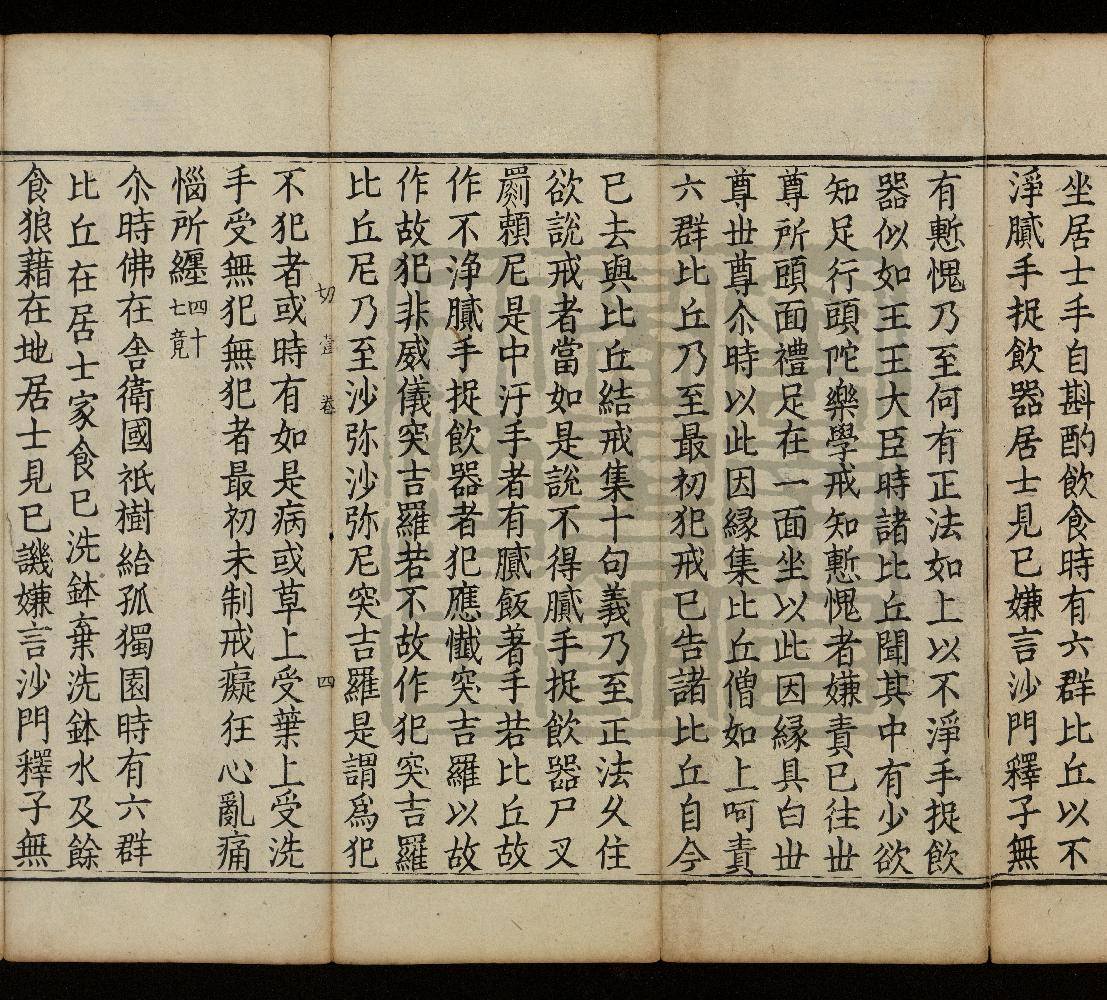 坐居士手自斟酌飲食時有六群比丘以不
淨膩手捉飲器居士見已嫌言沙門釋子無
有慙愧乃至何有正法如上以不淨手捉飲
器似如王王大臣時諸比丘聞其中有少欲
知足行頭陀樂學戒知慙愧者嫌責已往世
尊所頭面禮足在一面坐以此因縁具白世
尊世尊尒時以此因縁集比丘僧如上呵責
六群比丘乃至最初犯戒已告諸比丘自今
已去與比丘結戒集十句義乃至正法久住
欲說戒者當如是說不得膩手捉飲器尸叉
罽賴尼是中汙手者有膩飯著手若比丘故
作不淨膩手捉飲器者犯應懺突吉羅以故
作故犯非威儀突吉羅若不故作犯突吉羅
比丘尼乃至沙弥沙弥尼突吉羅是謂爲犯
切 壹卷 四
不犯者或時有如是病或草上受葉上受洗
手受無犯無犯者最初未制戒癡狂心亂痛
惱所纏四十七竟
尒時佛在舍衛國祇樹給孤獨園時有六群
比丘在居士家食已洗鉢棄洗鉢水及餘
食狼藉在地居士見已譏嫌言沙門釋子無